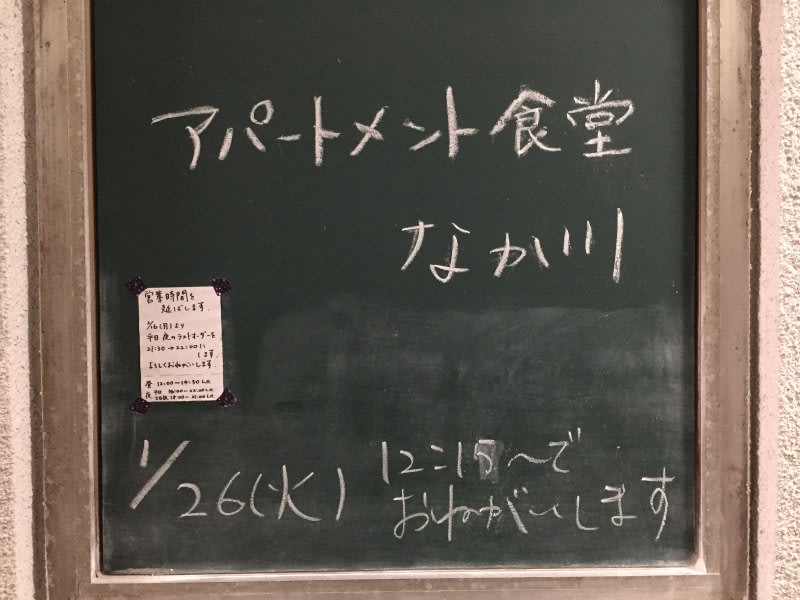 アパートメント食堂
なか川
営業時間を
延ばします。
平日 夜のラストオーダーを
21:30→22:00に
します。
よろしくおねがいします。
昼 12:00〜14:30 L.O.
1/26(火) 12:15〜で
おねがいします